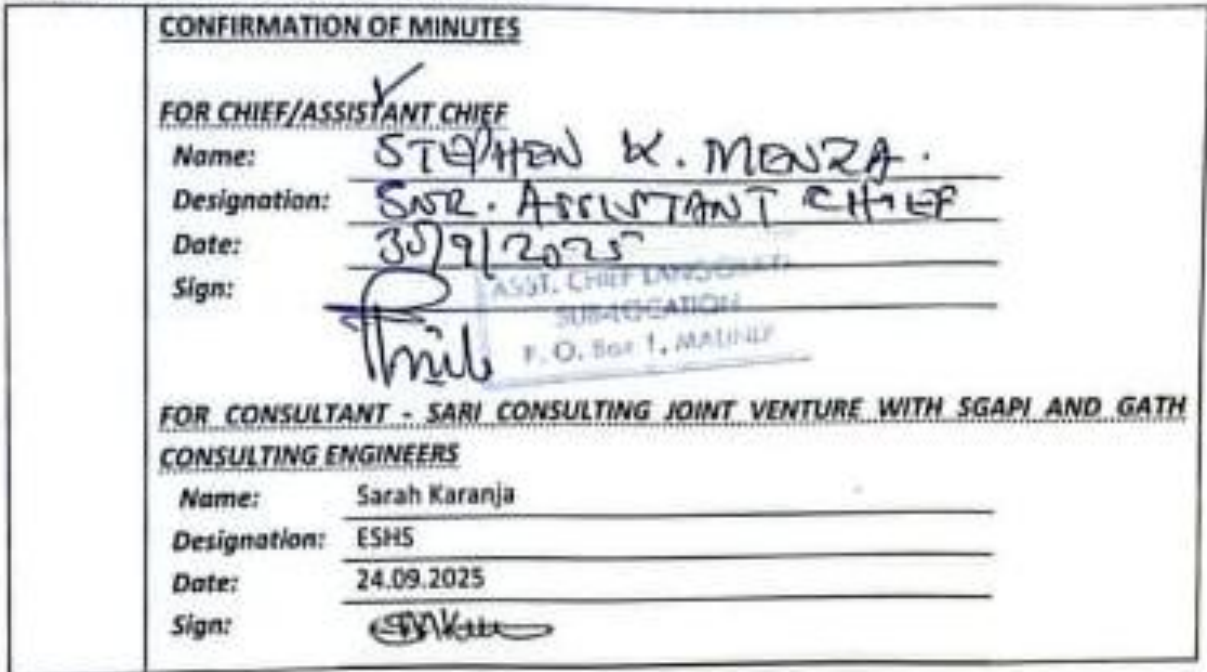 CONFIRMATION OF MINUTES
FOR CHIEF/ASSISTANT CHIEF
Name: STEPHEN K. MENZA.
Designation: SNR. ASSISTANT CHIEF
Date: 30/9/2025
Sign:
ASST. CHIEF
SUB-LOCATION
P. O. Box 1, MALINDI
FOR CONSULTANT - SARI CONSULTING JOINT VENTURE WITH SGAPI AND GATH
CONSULTING ENGINEERS
Name: Sarah Karanja
Designation: ESHS
Date: 24.09.2025
Sign: